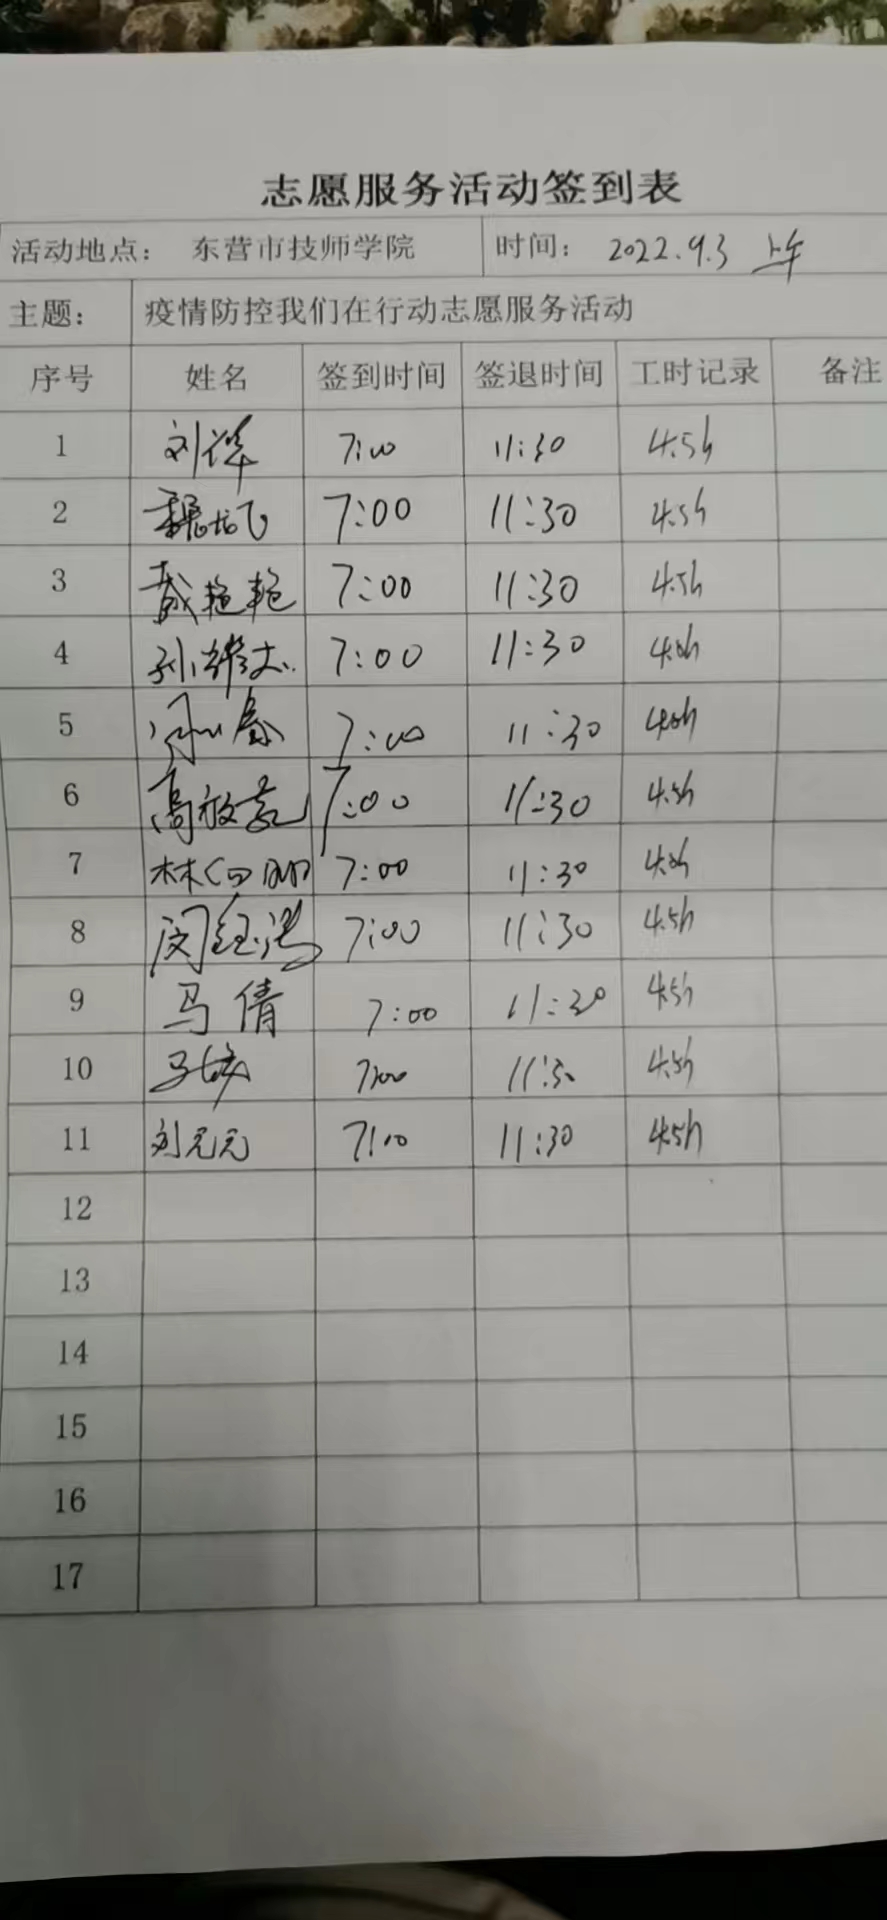 志愿服务活动签到表
活动地点： 东营市技师学院 时间： 2022.9.3 上午
主题： 疫情防控我们在行动志愿服务活动
序号 姓名 签到时间 签退时间 工时记录 备注
1 7:00 11:30 4.5h
2 7:00 11:30 4.5h
3 戴艳艳 7:00 11:30 4.5h
4 7:00 11:30
5 7:00 11:30
6 7:00 11:30 4.5h
7 7:00 11:30
8 7:00 11:30 4.5h
9 马倩 7:00 11:30 4.5h
10 7:00 11:30 4.5h
11 刘元元 11:30 4.5h
12
13
14
15
16
17